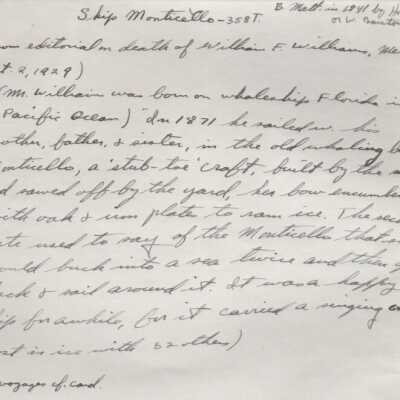 Ship Monticello - 358 T.
B. Matt. in 1841 by
om editorial on death of William F. Williams,
t. 2, 1929)
(Mr. William was born on whaleship Florida in
Pacific Ocean) "In 1871 he sailed w. his
other, father, & sister, in the old whaling b
onticello, a 'stub-toe' craft, built by the m
d sawed off by the yard, her bow encumber
ith oak & iron plate to ram ice. The sec
ate used to say of the Monticello that s
ould buck into a sea twice and then
ack & sail around it. It was a happy
hip for awhile, for it carried a singing
ost in ice with 32 others)
voyages cf. card.